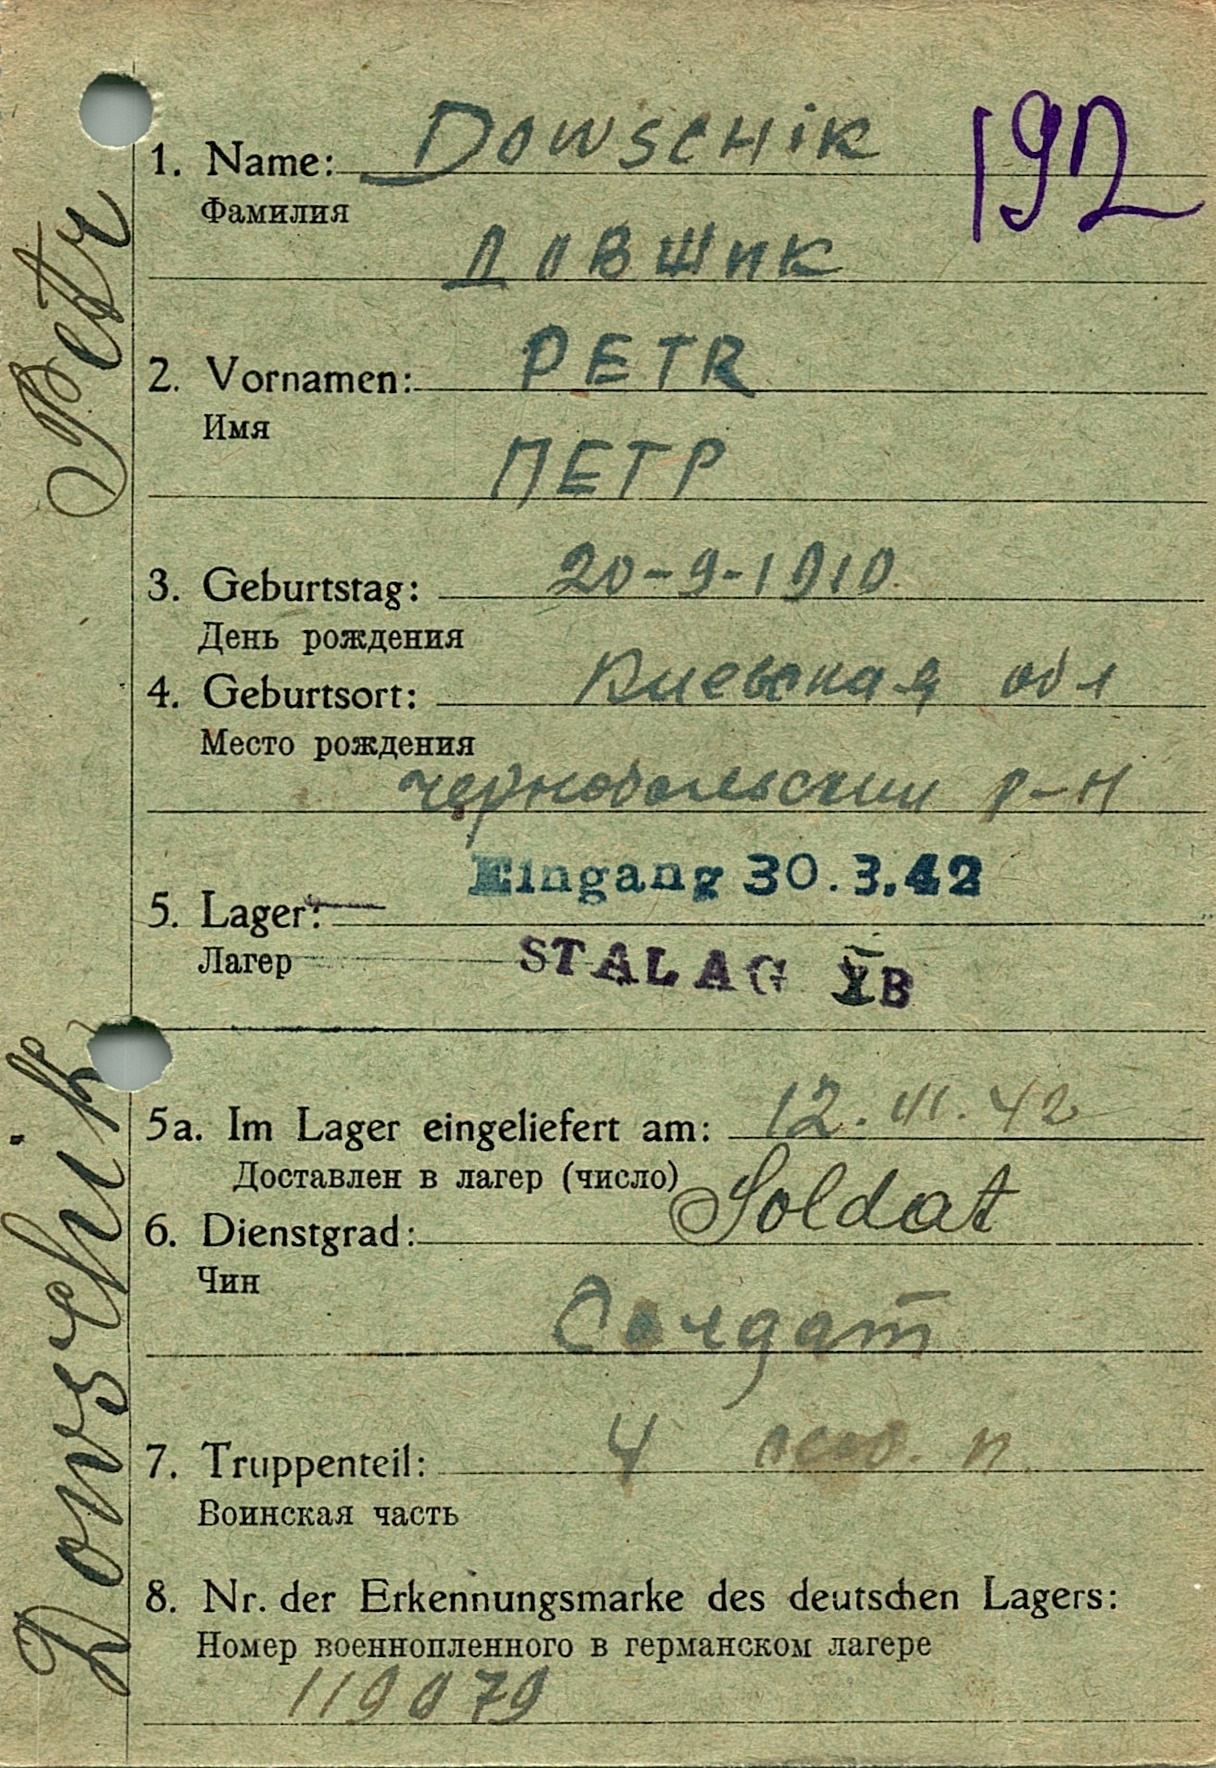 192
1. Name: DOWSCHiK
Фамилия
ДОВЩИК
2. Vornamen: PETR
Имя
ПЕТР
3. Geburtstag: 20-9-1910
День рождения
4. Geburtsort: Киевская обл
Место рождения
чернобольский р-н
Eingang 30.3.42
5. Lager:
Лагер STALAG XB
5a. Im Lager eingeliefert am: 12. III. 42
Доставлен в лагер (число)
6. Dienstgrad: Soldat
Чин
Солдат
7. Truppenteil: 4 п.
Воинская часть
8. Nr. der Erkennungsmarke des deutschen Lagers:
Номер военнопленного в германском лагере
119079
Dowschik Petr